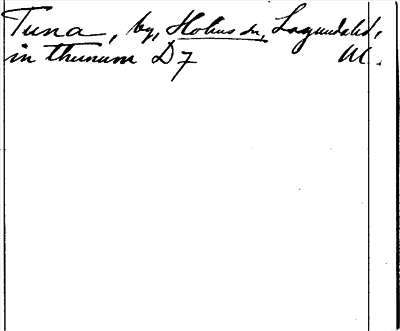 Tuna, by, Holms sn, Lagundahd,
in thunum D7 U.